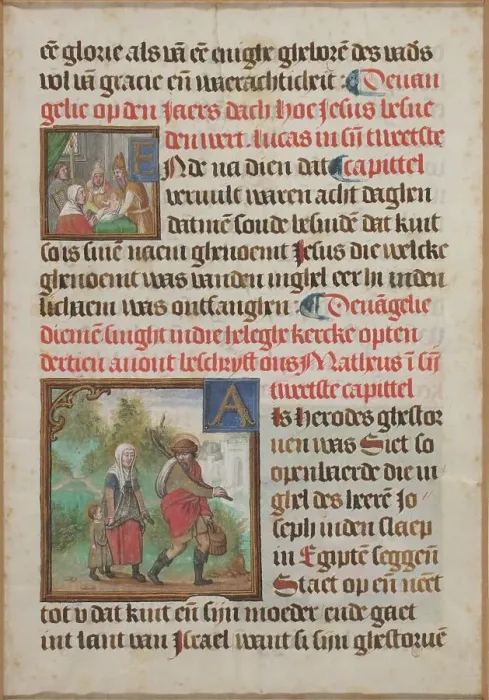 eē glorie als vā eē enighē gheborē des vaders
vol vā gracie eñ waerachticheit : Dewan
gelie op den Jaers dach hoe Jesus besne
den wert . lucas in sÿ tweetste
ENde na dien dat capittel
vervult waren acht daghen
datmē soude besnidē dat kint
so is sinē naem ghenoemt Jesus die welcke
ghenoemt was vanden inghel eer hi inden
lichaem was ontfanghen : Dewāgelie
diemē singht in die heleghe kercke opten
dertien avont bescrijft ons Matheus ī sÿ
tweetste capittel
Als herodes ghestor
uen was Siet so
openbaerde die in
ghel des heerē Jo
seph inden slaep
in Egiptē seggeñ
Staet op eñ neēt
tot v dat kint eñ sijn moeder ende gaet
int lant van Israel want si sijn ghestoruē